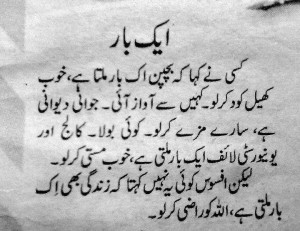 ایک بار
کسی نے کہا کہ بچپن اک بار ملتا ہے، خوب
کھیل کود کرلو۔ کہیں سے آواز آئی۔ جوانی دیوانی
ہے، سارے مزے کرلو۔ کوئی بولا۔ کالج اور
یونیورسٹی لائف ایک بار ملتی ہے، خوب مستی کرلو۔
لیکن افسوس کوئی یہ نہیں کہتا کہ زندگی بھی اِک
بار ملتی ہے، اللہ کو راضی کرلو۔